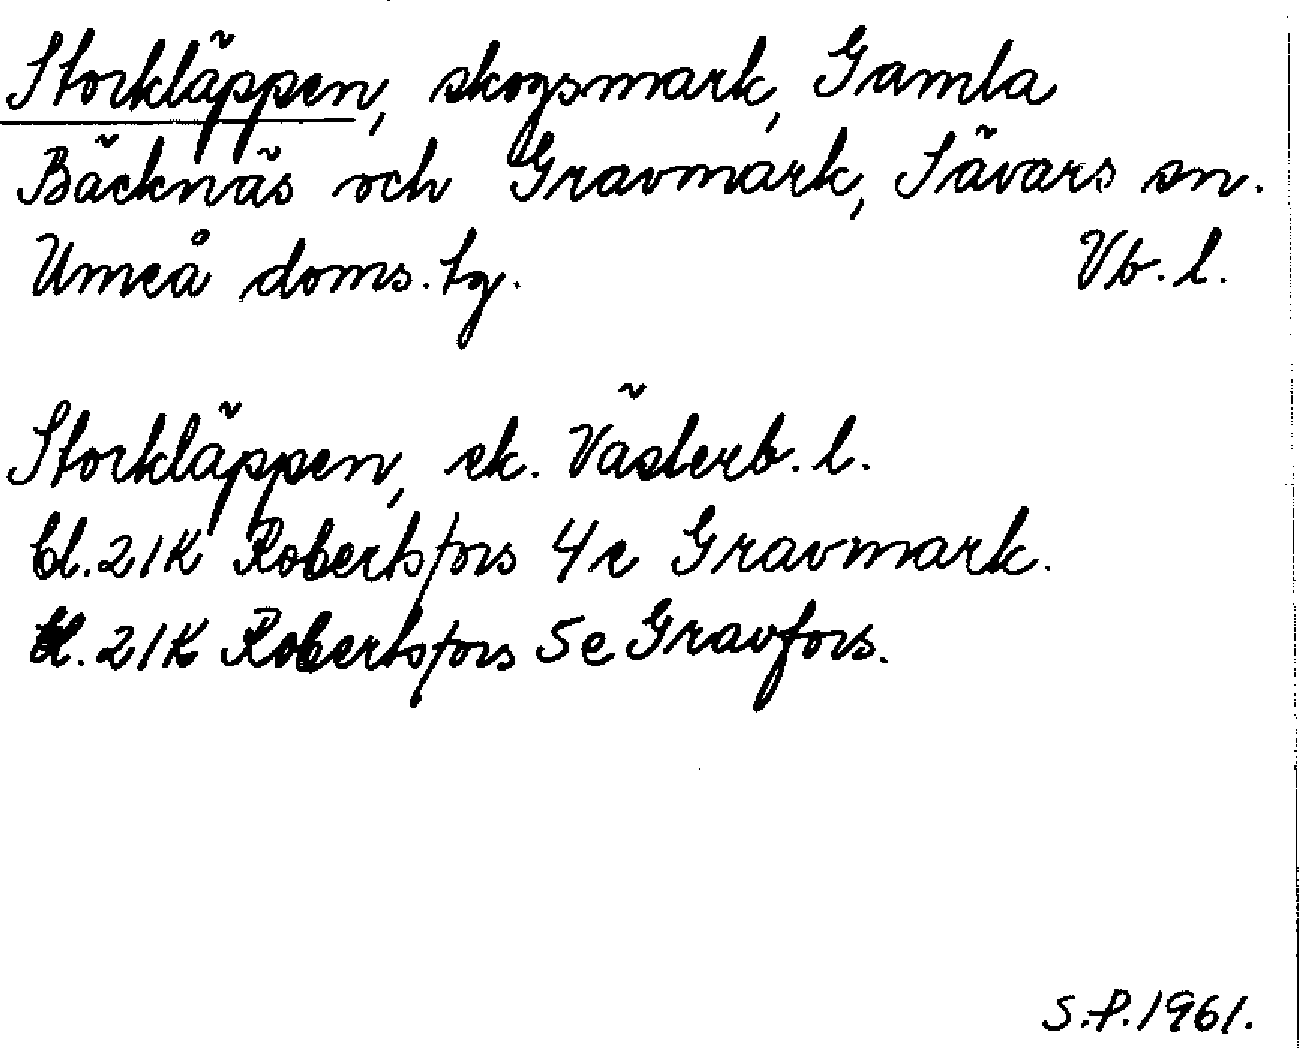 Storkläppen, skogsmark, Gamla
Bäcknäs och Gravmark, Sävars sn.
Umeå doms. tg. Vb. l.
Storkläppen, ek. Västerb. l.
bl. 21K Robertsfors 4e Gravmark.
bl. 21K Robertsfors 5e Gravfors.
S.P. 1961.